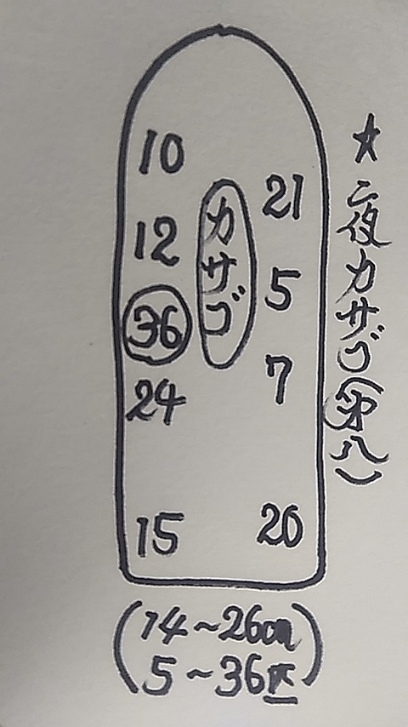 ★夜カサゴ(㐧八)
カサゴ
10
12
36
24
15
21
5
7
20
(14~26cm
5~36匹)